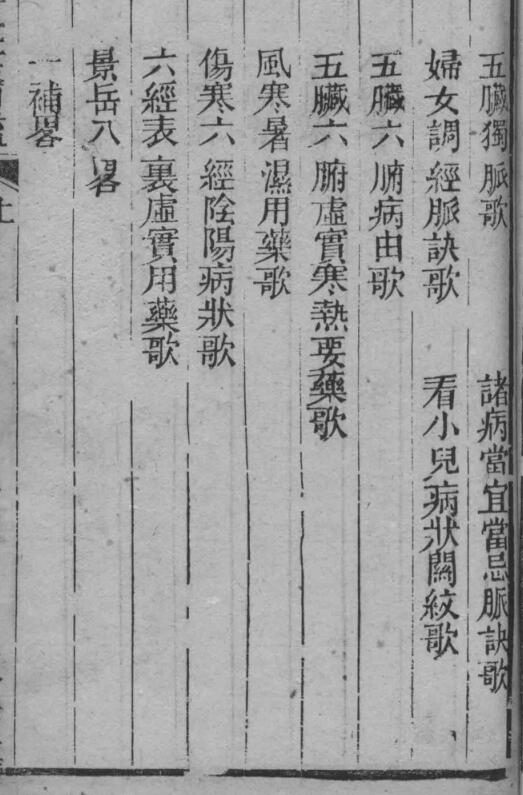 五臟獨脈歌　諸病當宜當忌脈訣歌
婦女調經脈訣歌　看小兒病狀關紋歌
五臟六腑病由歌
五臟六腑虛實寒熱要藥歌
風寒暑濕用藥歌
傷寒六經陰陽病狀歌
六經表裏虛實用藥歌
景岳八畧
一補畧